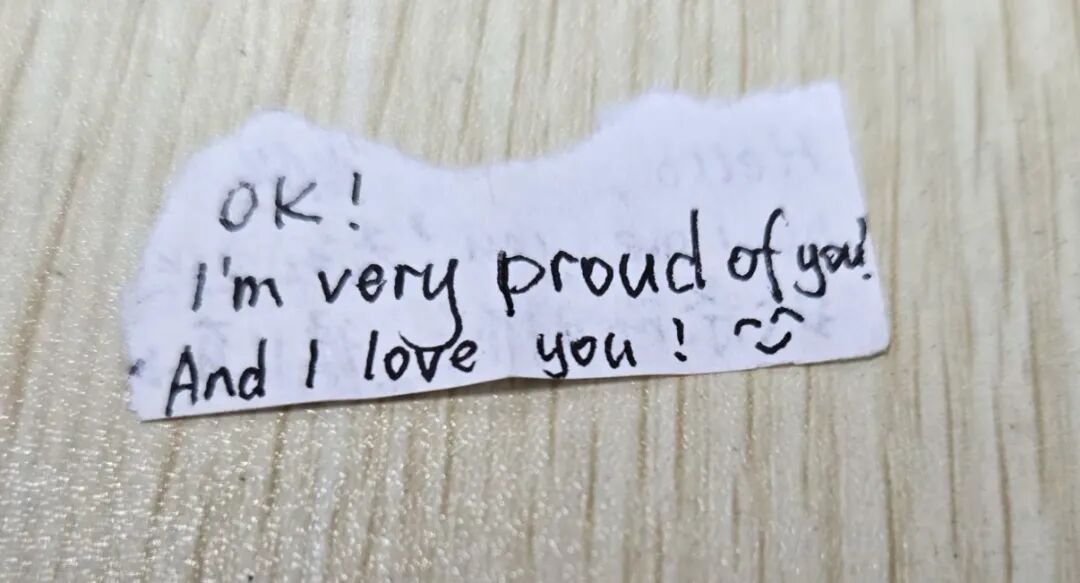 OK!
I'm very proud of you!
And I love you!